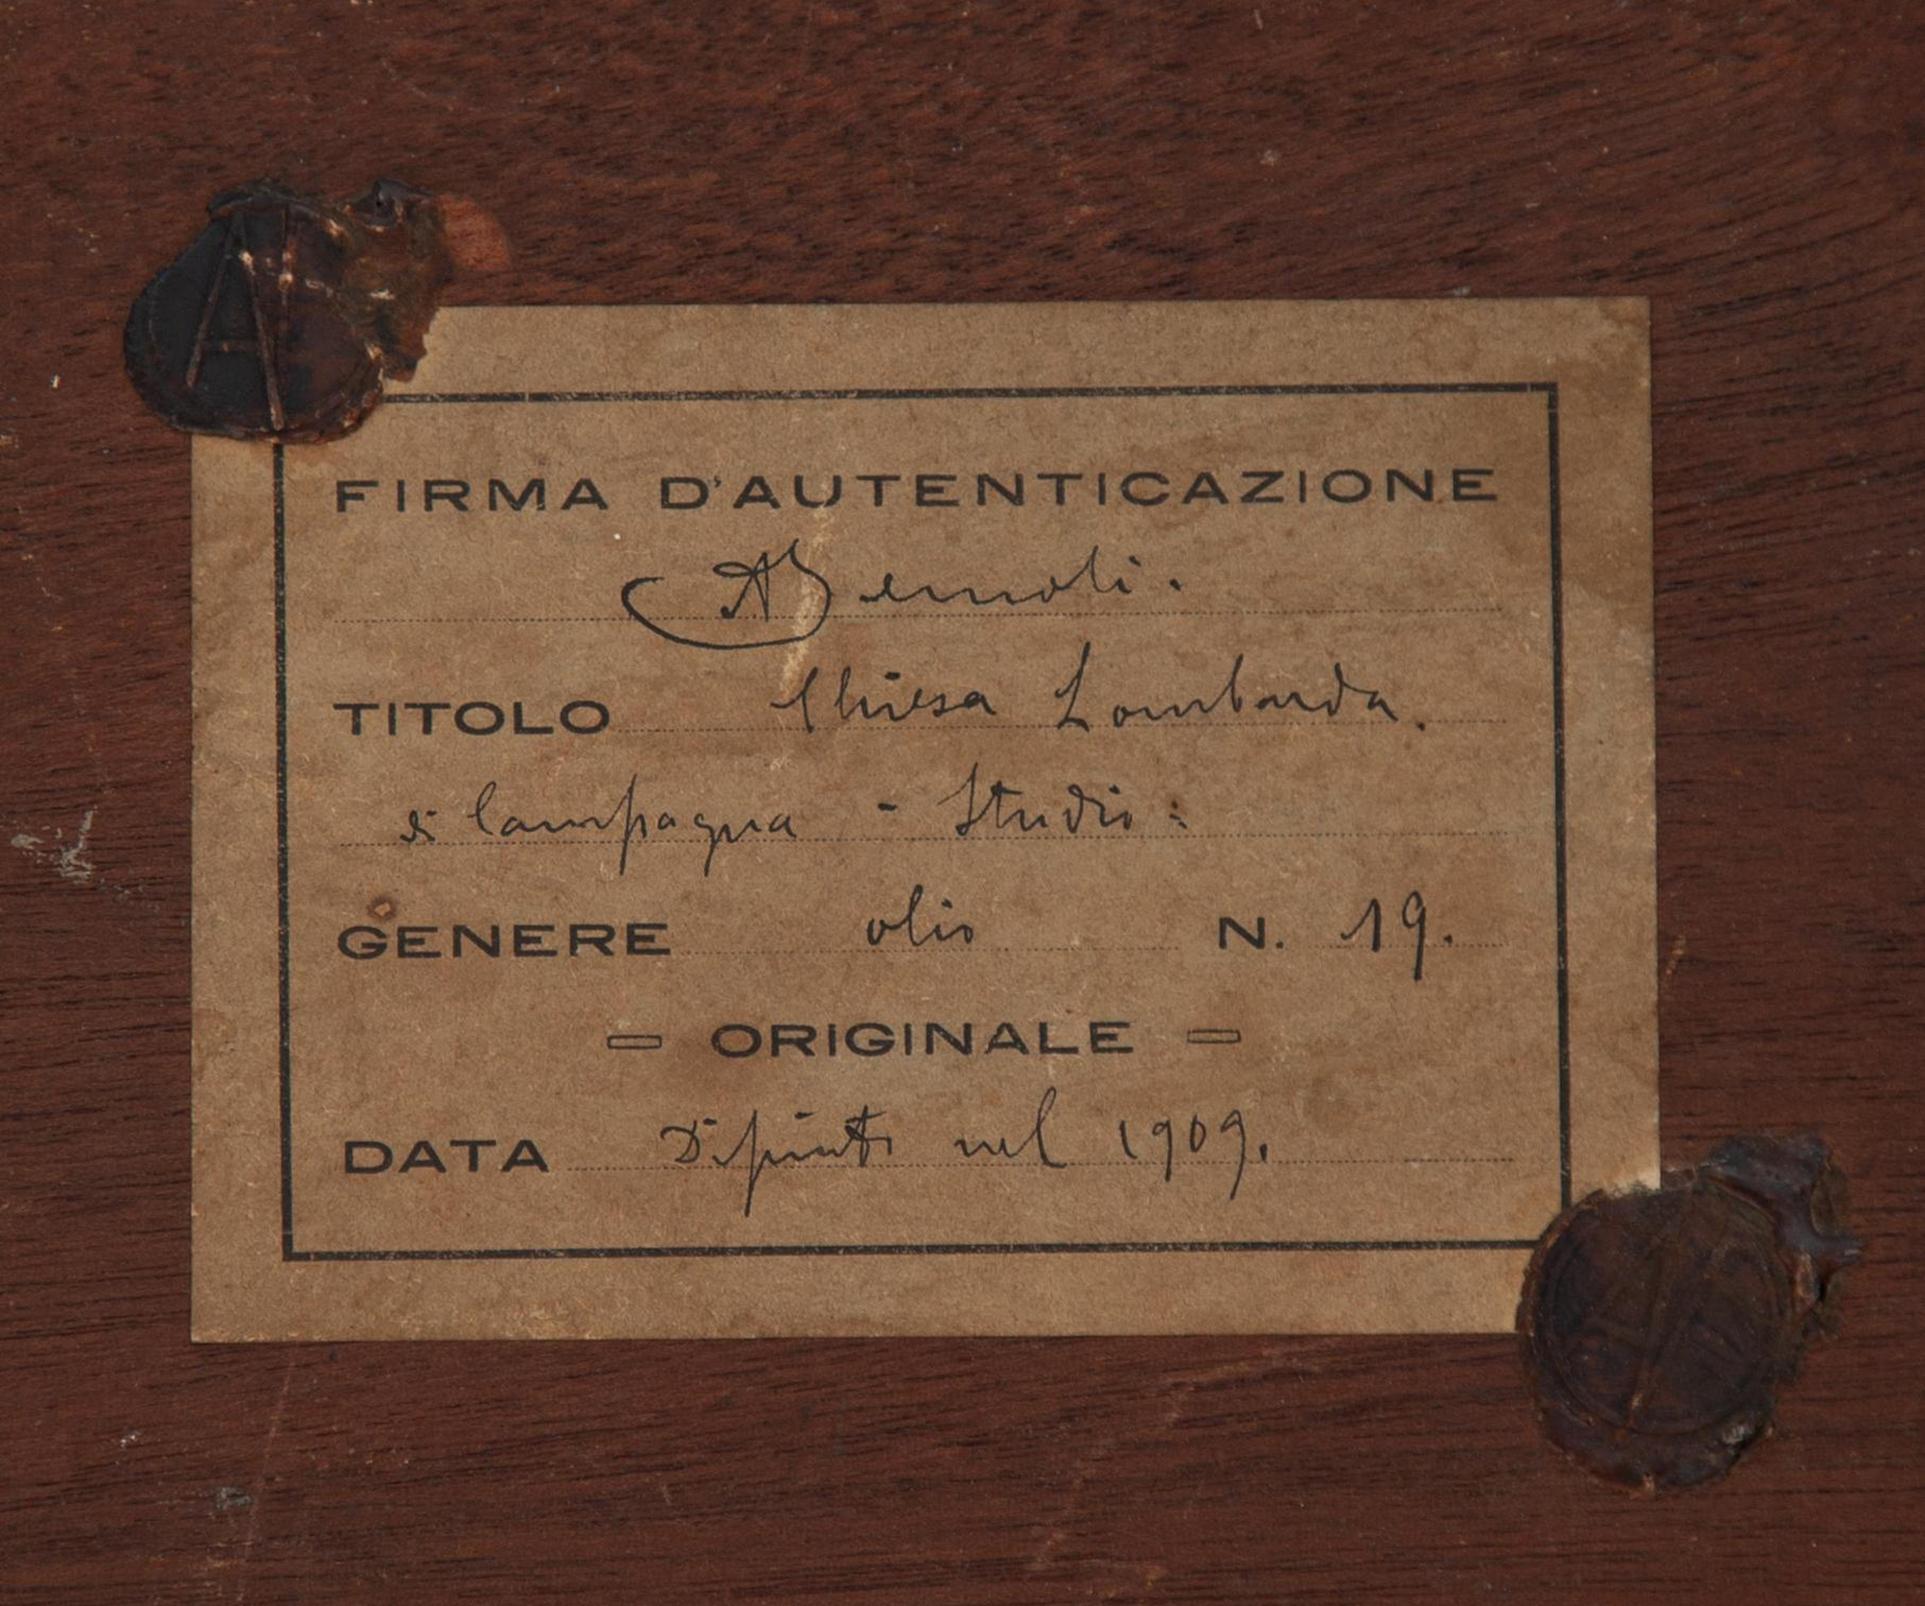 FIRMA D'AUTENTICAZIONE
TITOLO Chiesa Lombarda.
di Campagna - Studio :
GENERE olio N. 19.
ORIGINALE
DATA Dipinto nel 1909.